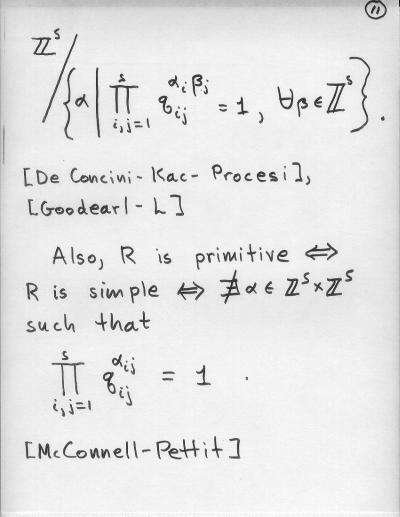 11
ℤ^s / { α | ∏_{i,j=1}^{s} q_{ij}^{α_i β_j} = 1, ∀β ∈ ℤ^s } .
[De Concini-Kac-Procesi],
[Goodearl-L]
Also, R is primitive ⇔
R is simple ⇔ ∄ α ∈ ℤ^s × ℤ^s
such that
∏_{i,j=1}^{s} q_{ij}^{α_{ij}} = 1 .
[McConnell-Pettit]